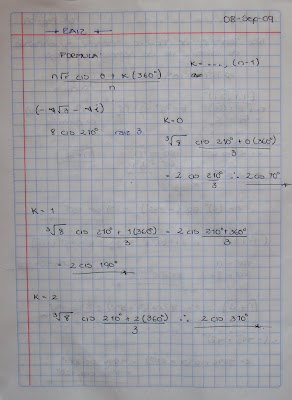 08-Sep-09
RAIZ
FORMULA
n√r cis θ + K(360°)
n
K = ...., (n-1)
8 cis 210° raiz 3
K=0
³√8 cis 210° + 0(360°)
3
= 2 cis 210° ∴ 2 cis 70°
3
K = 1
³√8 cis 210° + 1(360°) = 2 cis 210°+360°
3 3
= 2 cis 190°
K = 2
³√8 cis 210° + 2(360°) ∴ 2 cis 310°
3